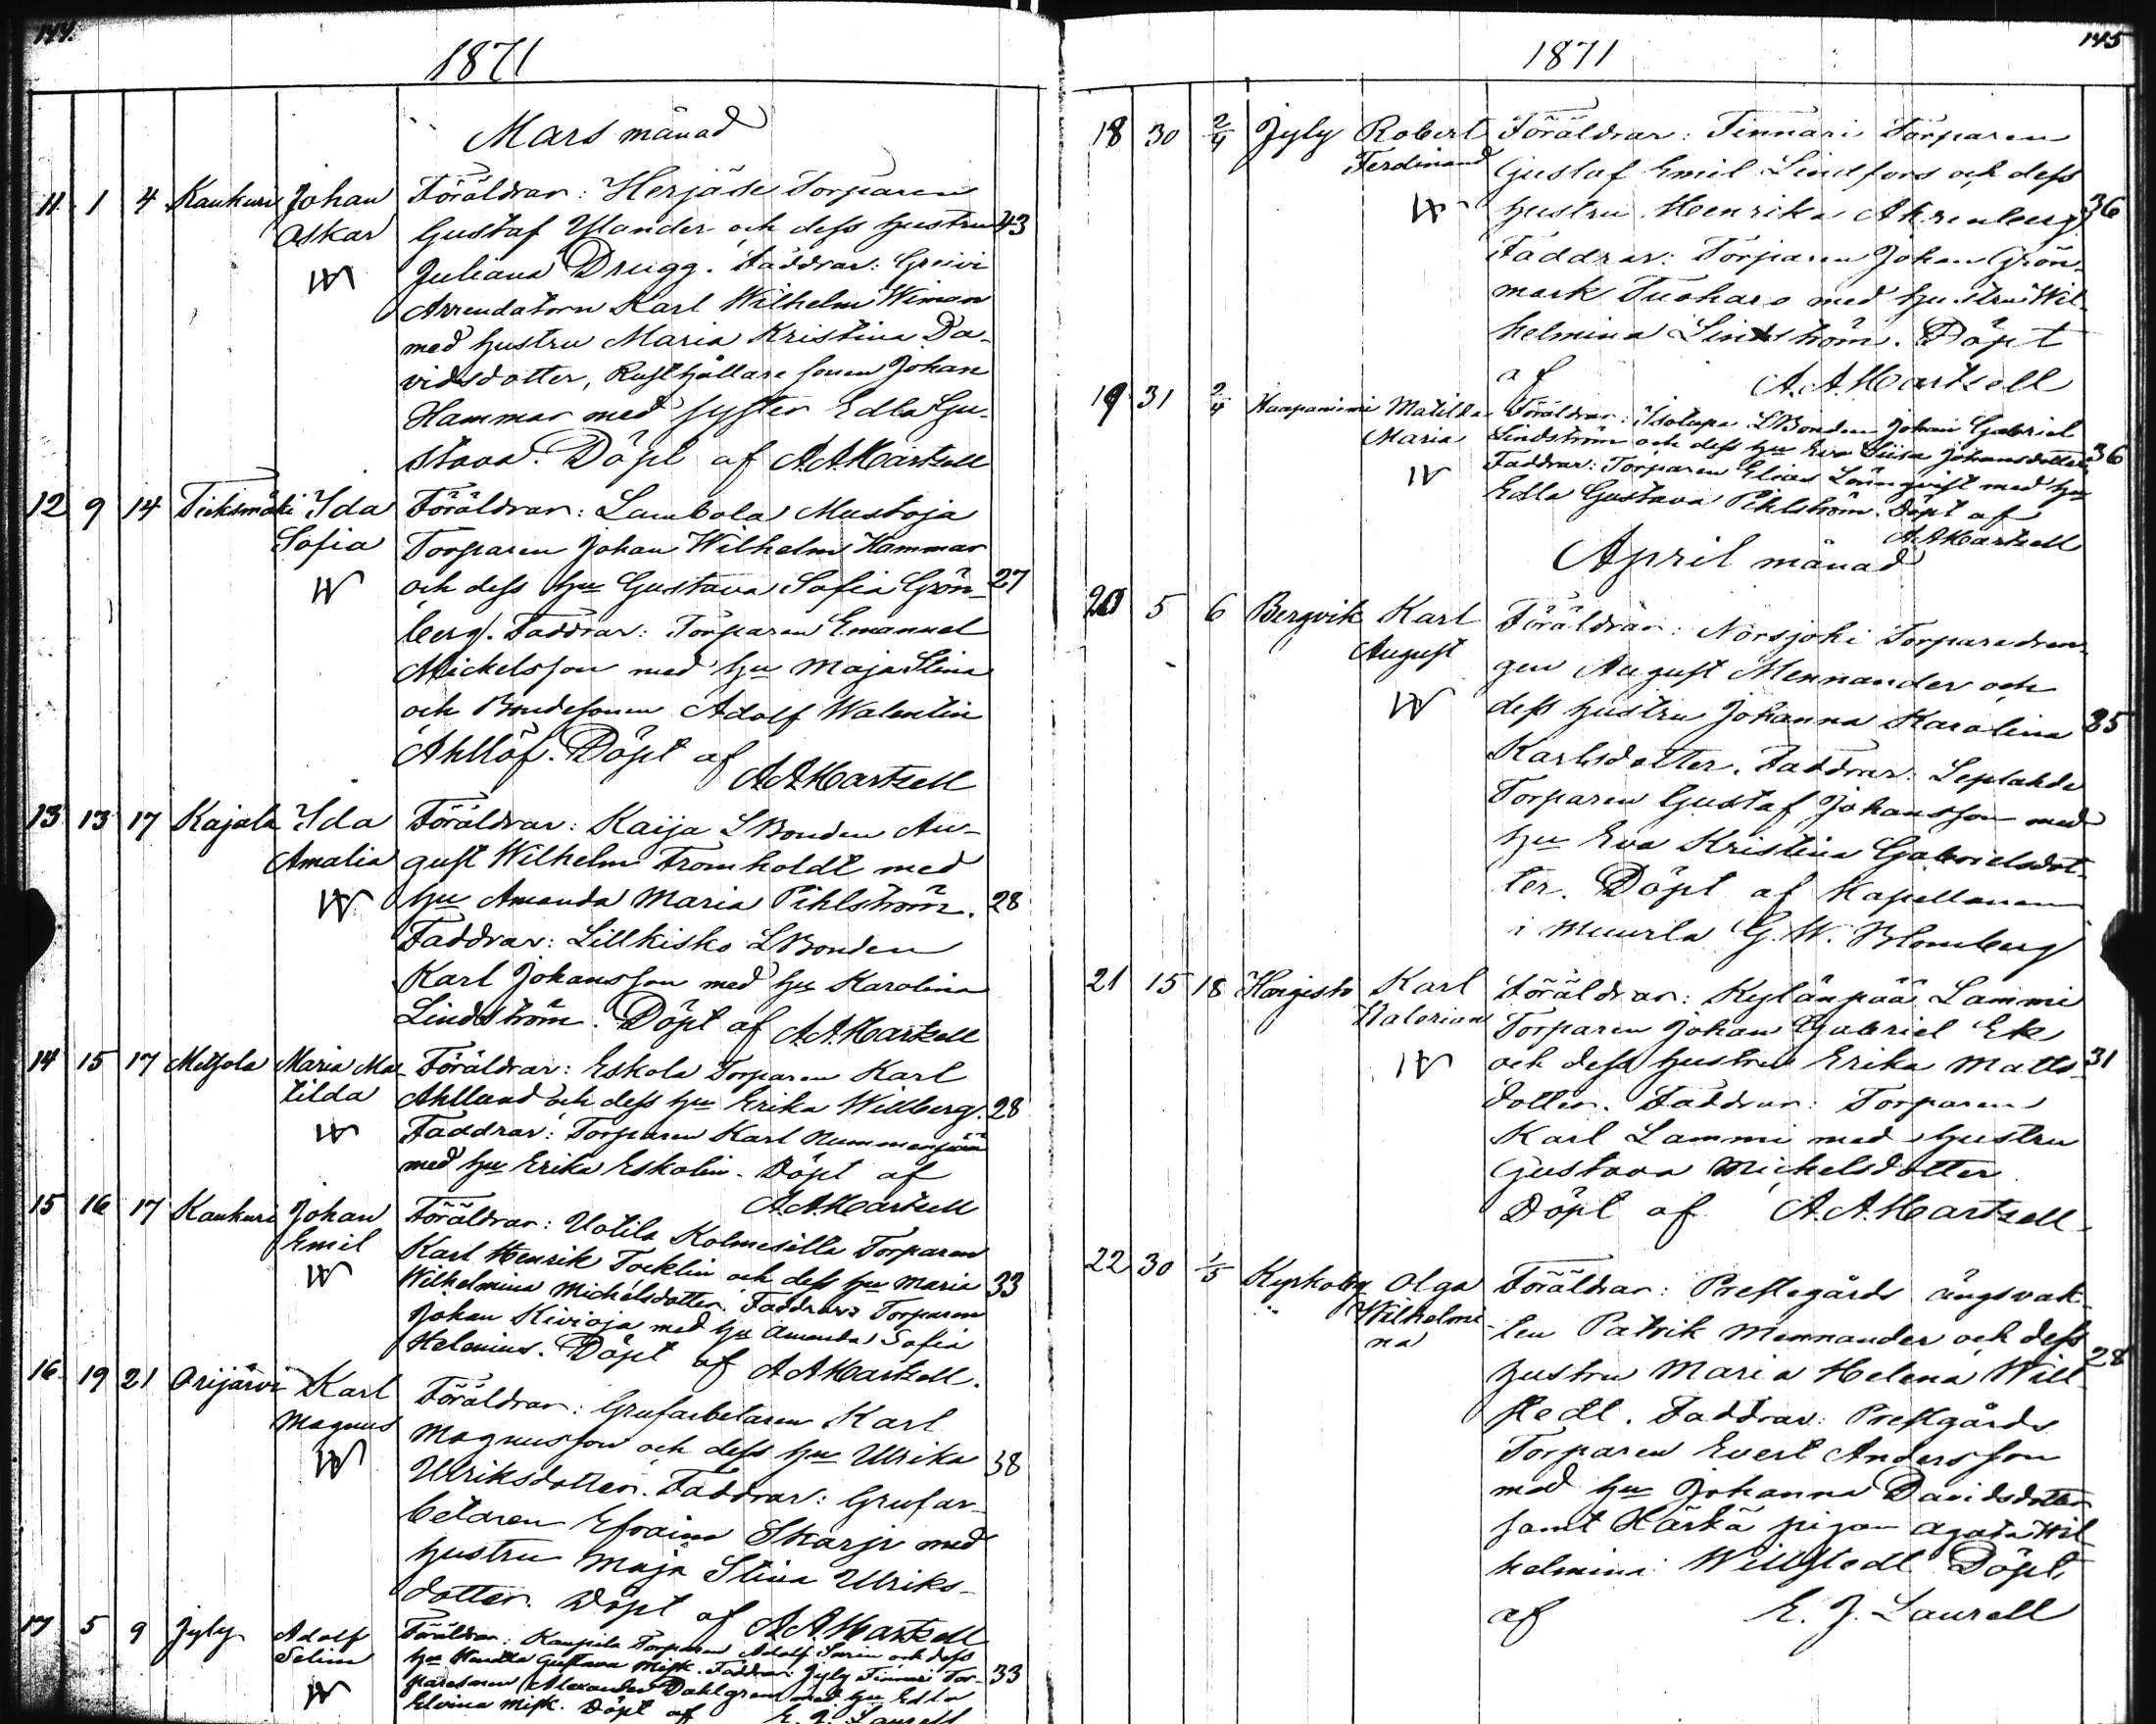 144.
1871
Mars månad
11. 1 4 Kaukuri Johan Föräldrar: Herjäse Torparen
Oskar Gustaf Ylander och dess hustru 43
Juliana Drugg. Faddrar: Greivi
Arrendatorn Karl Wilhelm Wiman
med hustru Maria Kristina Da-
vidsdotter, Rusthållare sonen Johan
Hammar med syster Edla Gu-
stava. Döpt af A.A.Hartzell
12 9 14 Tieksmäki Ida Föräldrar: Lambola Mustoja
Sofia Torparen Johan Wilhelm Hammar
och dess hu Gustava Sofia Grön- 27
berg. Faddrar: Torparen Emanuel
Mickelsson med hu Maja Stina
och Bondesonen Adolf Walentin
Ahllöf. Döpt af
A.A.Hartzell
13 13 17 Kajala Ida Föräldrar: Kaija LBonden Au-
Amalia gust Wilhelm Fromholdt med
hu Amanda Maria Pihlström. 28
Faddrar: Lillkisko LBonden
Karl Johansson med hu Karolina
Lindström. Döpt af A.A.Hartzell
14 15 17 Metsola Maria Ma- Föräldrar: Eskola Torparen Karl
tilda Ahllund och dess hu Erika Willberg. 28
Faddrar: Torparen Karl Nummenpää
med hu Erika Eskolin. Döpt af
A.A.Hartzell
15 16 17 Kaukuri Johan Föräldrar: Uotila Kolmesilla Torparen
Emil Karl Henrik Tocklin och dess hu Maria 33
Wilhelmina Michelsdotter. Faddrar: Torparen
Johan Kivioja med hu Amanda Sofia
Helenius. Döpt af A.A.Hartzell.
16. 19 21 Orijärvi Karl Föräldrar: Grufarbetaren Karl
Magnus Magnusson och dess hu Ulrika 38
Ulriksdotter. Faddrar: Grufar-
betaren Efraim Skarp med
hustru Maja Stina Ulriks-
dotter. Döpt af A.A.Hartzell
17 5 9 Jyly Adolf Föräldrar: Kaupila Torparen Adolf Sarin och dess
Selim hu Gustava Misk. Faddrar: Jyly Tinnari Tor- 33
paresonen Alexander Dahlgren med hu Edla
Elvina Misk. Döpt af E. J. Laurell
145
1871
18 30 2/4 Jyly Robert Föräldrar: Tinnari Torparen
Ferdinand Gustaf Emil Lindfors och dess
hustru Henrika Akrenberg 36
Faddrar: Torparen Johan Grön-
mark Tuoharo med hustru Wil-
helmina Lindström. Döpt
af A.A.Hartzell
19 31 2/4 Haapaniemi Matilda Föräldrar: Isotupa LBonden Johan Gabriel
Maria Lindström och dess hu Eva Lisa Johansdotter 36
Faddrar: Torparen Elias Lönnqvist med hu
Edla Gustava Pihlström. Döpt af
A.A.Hartzell
April månad
20 5 6 Bergvik Karl Föräldrar: Norsjoki Torparedren-
August gen August Mennander och
dess hustru Johanna Karolina 35
Karlsdotter. Faddrar: Leplahde
Torparen Gustaf Johansson med
hu Eva Kristina Gabrielsdot-
ter. Döpt af Kapellanen
i Muurla G. W. Blomberg
21 15 18 Horgisto Karl Föräldrar: Kylänpää Lammi
Walerian Torparen Johan Gabriel Ek
och dess hustru Erika Matts- 31
dotter. Faddrar: Torparen
Karl Lammi med hustru
Gustava Michelsdotter.
Döpt af A.A.Hartzell
22 30 1/5 Kyrkoby Olga Föräldrar: Prestegårds ängsvak-
Wilhelmi- ten Patrik Mennander och dess
na hustru Maria Helena Will- 28
stedt. Faddrar: Prestgårds
Torparen Evert Andersson
med hu Johanna Davidsdotter
samt Härkä pigan Agata Wil-
helmina Willstedt Döpt
af E. J. Laurell